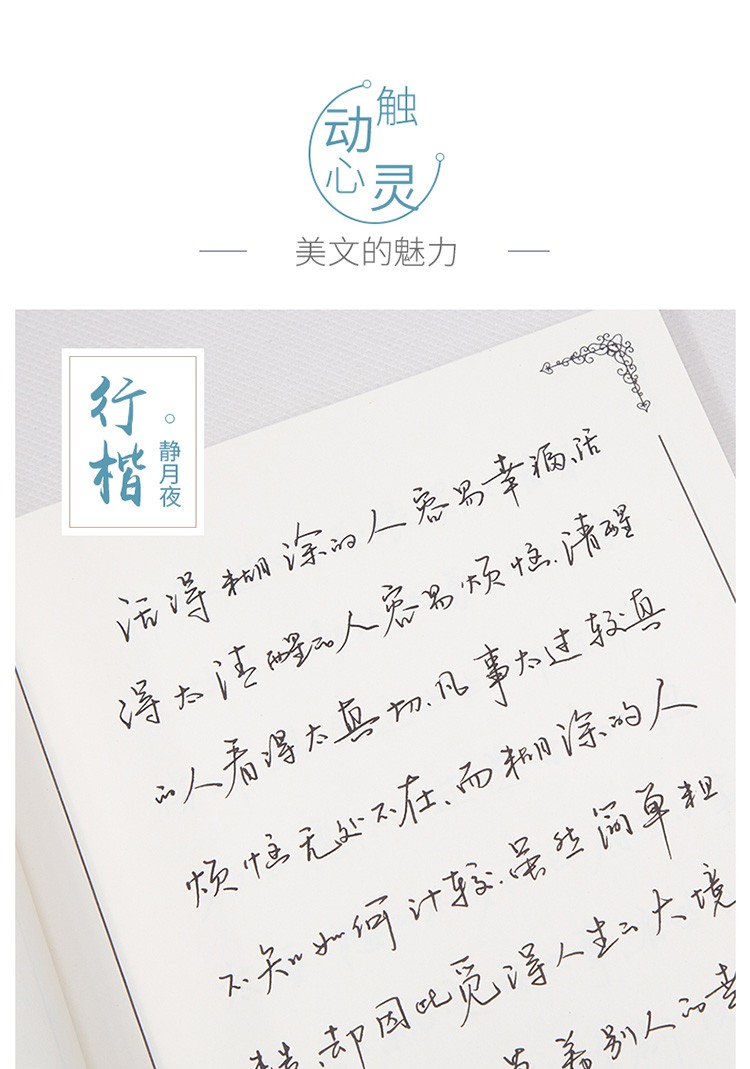 触动心灵
美文的魅力
行楷
静月夜
活得糊涂的人容易幸福、活
得太清醒的人容易烦恼.清醒
的人看得太真切.凡事太过较真
烦恼无处不在、而糊涂的人
不知如何计较.虽然简单粗
糙、却因此觅得人生之大境
羡别人的幸